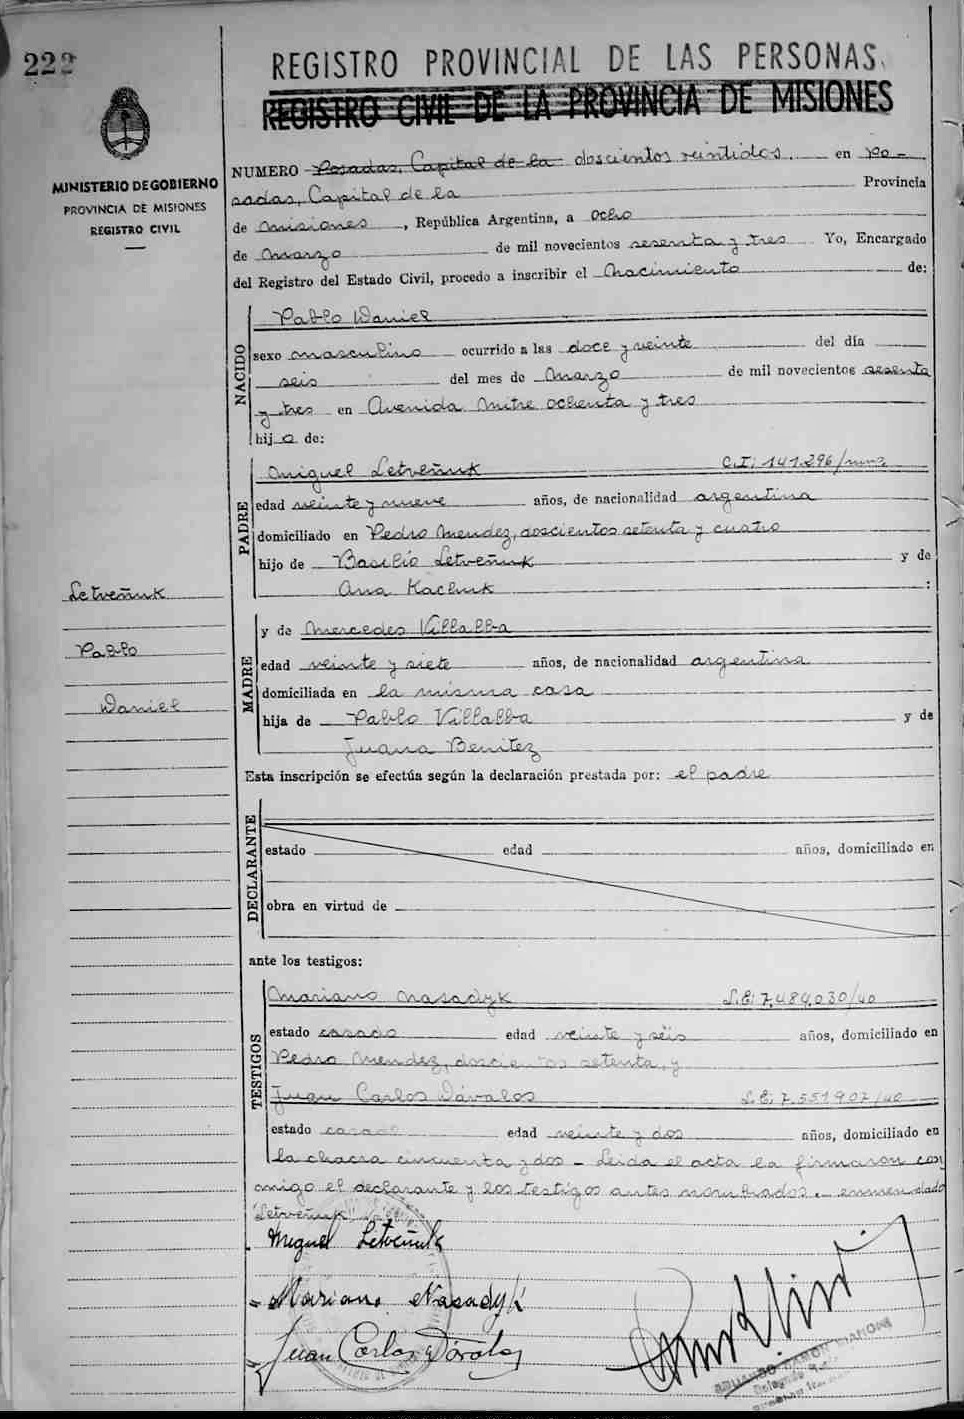 222
REGISTRO PROVINCIAL DE LAS PERSONAS.
REGISTRO CIVIL DE LA PROVINCIA DE MISIONES
MINISTERIO DE GOBIERNO
PROVINCIA DE MISIONES
REGISTRO CIVIL
NUMERO Posadas, Capital de la doscientos veintidos. en Po-
sadas, Capital de la Provincia
de Misiones, República Argentina, a ocho
de Marzo de mil novecientos sesenta y tres Yo, Encargado
del Registro del Estado Civil, procedo a inscribir el Nacimiento de:
NACIDO
Pablo Daniel
sexo masculino ocurrido a las doce y veinte del día
seis del mes de Marzo de mil novecientos sesenta
y tres en Avenida Mitre ochenta y tres
hijo de:
PADRE
Miguel Letveñuk C.I: 141.296/
edad veinte y nueve años, de nacionalidad argentina
domiciliado en Pedro Mendez, doscientos setenta y cuatro
hijo de Basilio Letveñuk y de
Ana Kachuk :
Letveñuk
Pablo
Daniel
MADRE
y de Mercedes Villalba
edad veinte y siete años, de nacionalidad argentina
domiciliada en la misma casa
hija de Pablo Villalba y de
Juana Benitez
Esta inscripción se efectúa según la declaración prestada por: el padre
DECLARANTE
estado edad años, domiciliado en
obra en virtud de
ante los testigos:
TESTIGOS
Mariano Nasadyk L.E: 7.484.030/40
estado casado edad veinte y séis años, domiciliado en
Pedro Mendez, doscientos setenta, y
Juan Carlos Dávalos L.E: 7.551.907/40
estado casado edad veinte y dos años, domiciliado en
la chacra cincuenta y dos - Leida el acta la firmaron con
migo el declarante y los testigos antes nombrados. - enmendado
"Letveñuk"
Miguel Letveñuk
Mariano Nasadyk
Juan Carlos Dávalos